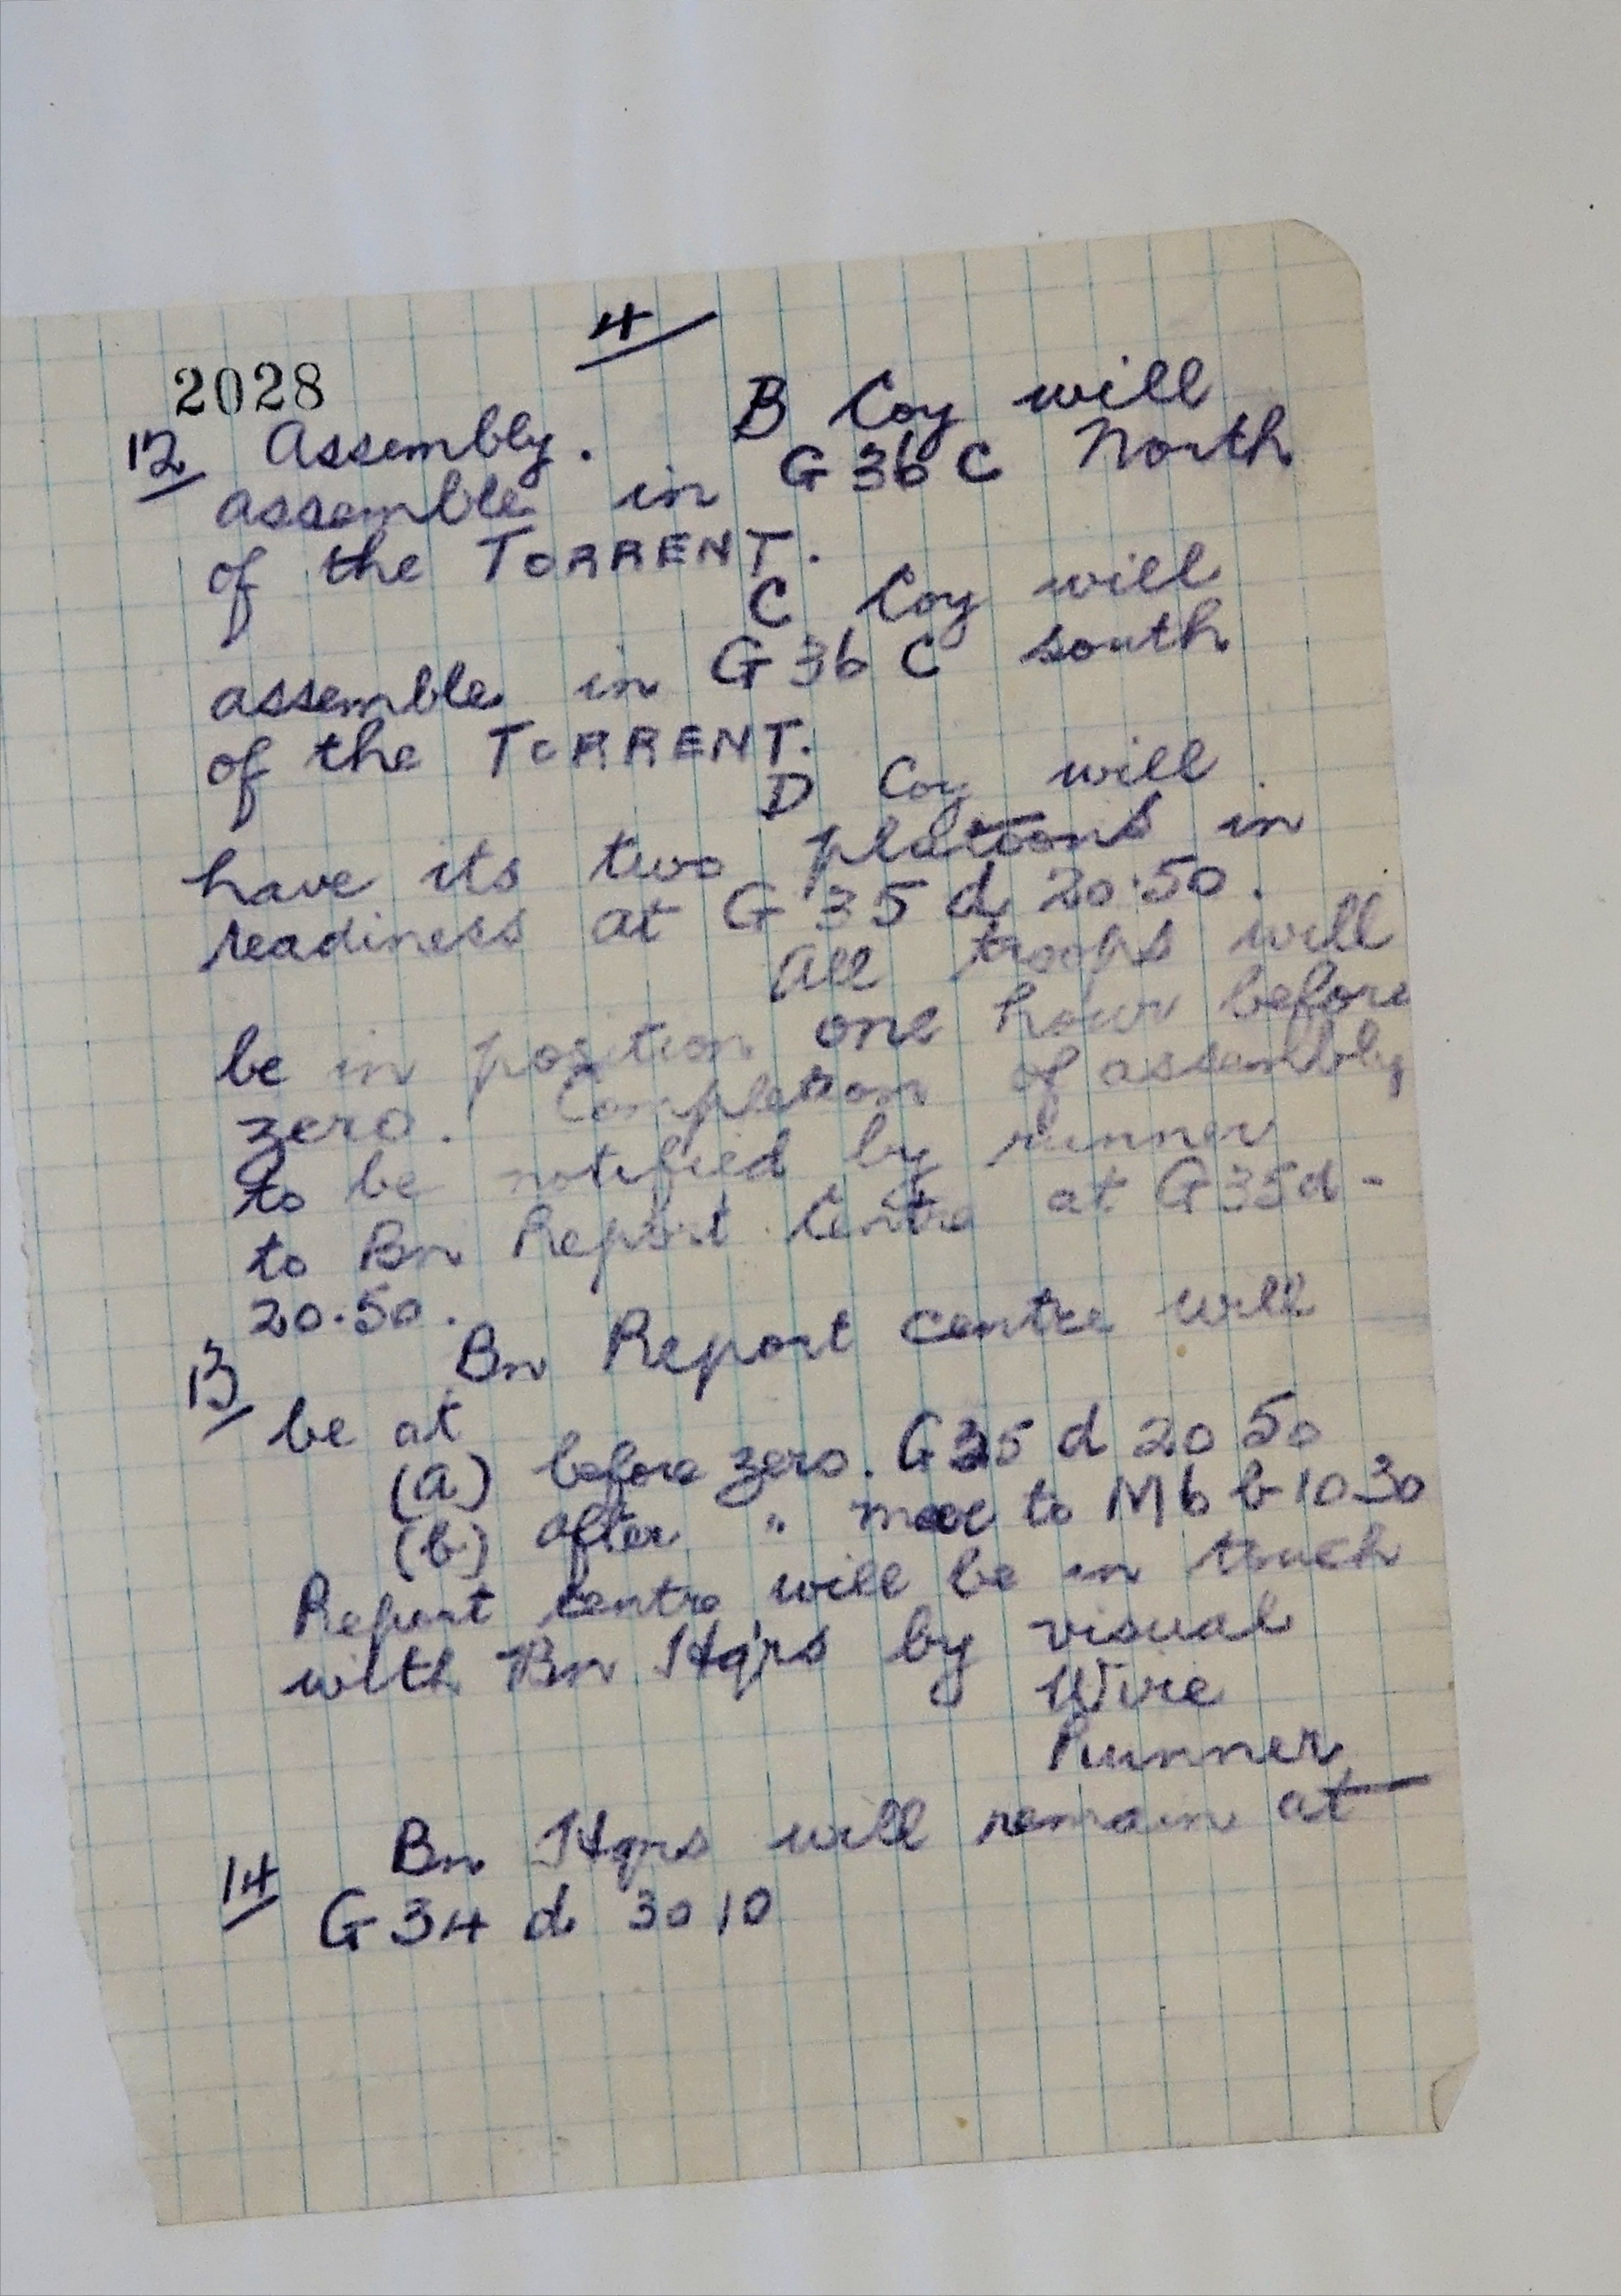 4
2028
12 Assembly. B Coy will
assemble in G 36 C North
of the TORRENT.
C Coy will
assemble in G 36 C south
of the TORRENT.
D Coy will
have its two platoons in
readiness at G 35 d 20.50.
All troops will
be in position one hour before
zero. Completion of assembly
to be notified by runner
to Bn Report Centre at G35d-
20.50.
13 Bn Report centre will
be at
(a) before zero. G35 d 20 50
(b) after " move to M6 b 10 30
Report centre will be in touch
with Bn Hqrs by visual
Wire
Runner
14 Bn Hqrs will remain at
G 34 d 30 10